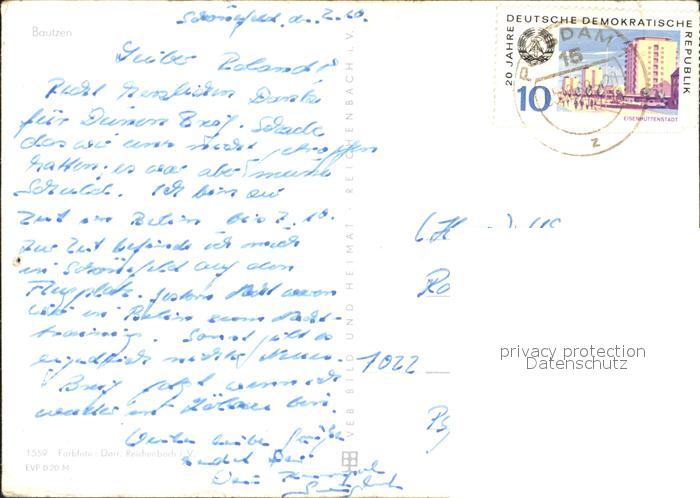 Bautzen
Schönefeld, d. 2.10.
Lieber Roland!
Recht herzlichen Danke
für Deinen Brief. Schade
das wir uns nicht getroffen
hatten, es war aber meine
Schuld. Ich bin zur
Zeit in Berlin bis 7.10.
Zur Zeit befinde ich mich
in Schönefeld auf dem
Flugplatz. Gestern Nacht waren
wir in Berlin zum Nacht-
training. Sonst gibt es
eigentlich nichts Neues.
Brief jetzt wenn ich
wieder in bin.
Viele liebe Grüße
sendet Dir
Dein
1559 Farbfoto: Darr, Reichenbach i. V.
EVP 0.20 M
VEB BILD UND HEIMAT · REICHENBACH i. V.
20 JAHRE DEUTSCHE DEMOKRATISCHE REPUBLIK
10
EISENHÜTTENSTADT
POTSDAM
15
z
Ro
1022
privacy protection
Datenschutz